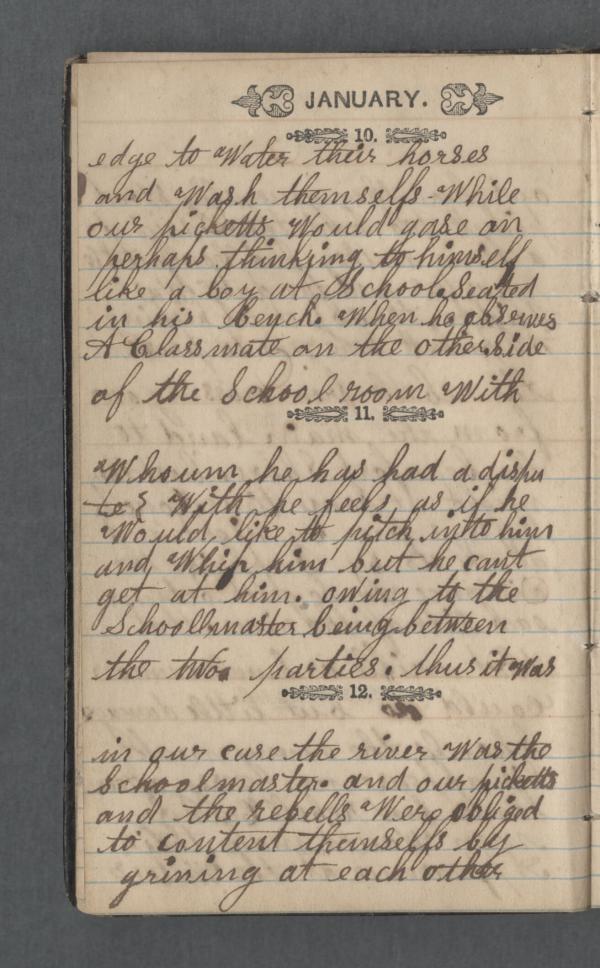 JANUARY.
10.
edge to Water their horses
and Wash themselfs. While
our picketts Would gase on
perhaps thinking to himself
like a boy at School. Seated
in his Bench. When he observes
A Classmate on the other. Side
of the School room With
11.
Whoum he has had a dispu
te & With he feels as if he
Would like to pitch intto him
and Whip him but he cant
get at him. owing to the
Schoollmaster being between
the two parties: thus it Was
12.
in our case the river Was the
Schoolmaster. and our picketts
and the rebells Were obliged
to content themselfs by
grining at each other